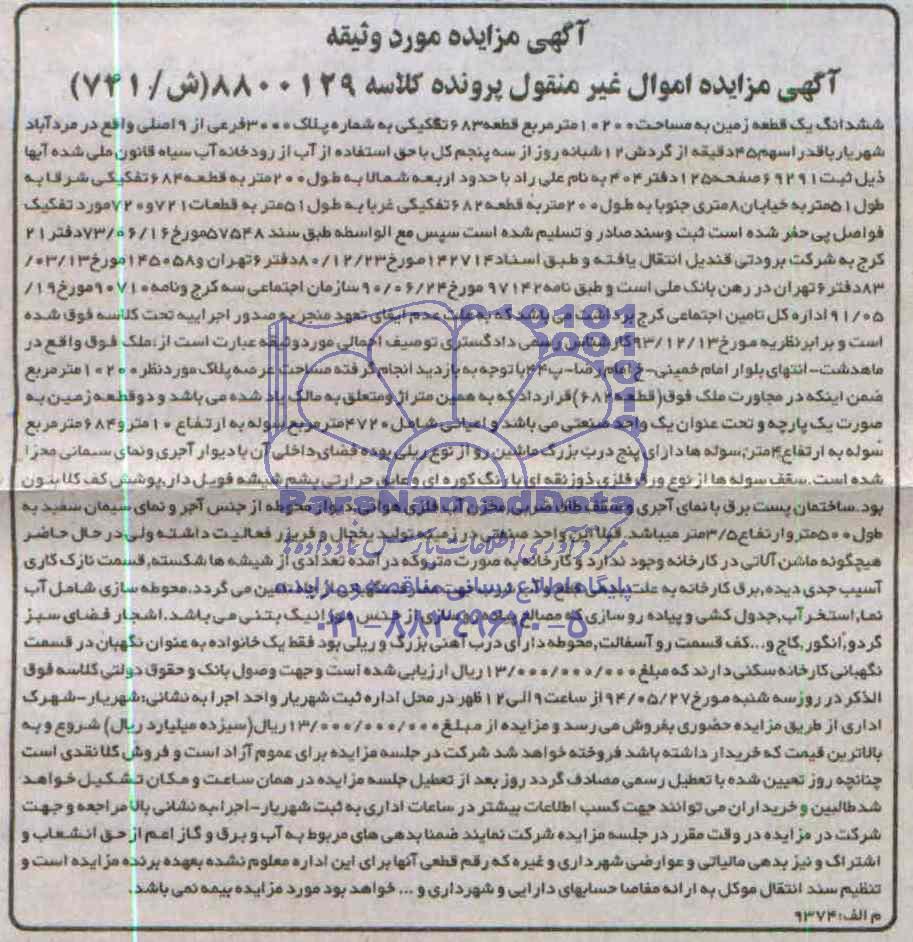 آگهی مزایده مورد وثیقه
آگهی مزایده اموال غیر منقول پرونده کلاسه ۸۸۰۰۱۲۹(ش/۷۴۱)
ششدانگ یک قطعه زمین به مساحت ۱۰۲۰۰مترمربع قطعه۶۸۳تفکیکی به شماره پلاک۳۰۰۰فرعی از ۹اصلی واقع در مردآباد
شهریار باقدر اسهم۴۵دقیقه از گردش۱۲شبانه روز از سه پنجم کل با حق استفاده از آب از رودخانه آب سیاه قانون ملی شده آبها
ذیل ثبت۶۹۲۹۱صفحه۱۲۵دفتر۴۰۴به نام علی راد با حدود اربعه شمالا به طول۲۰۰متر به قطعه۶۸۴تفکیکی شرقا به
طول۵۱متربه خیابان۸متری جنوبا به طول۲۰۰متربه قطعه۶۸۲تفکیکی غربا به طول۵۱متر به قطعات۷۲۱و۷۲۰مورد تفکیک
فواصل پی حفر شده است ثبت وسندصادر و تسلیم شده است سپس مع الواسطه طبق سند ۵۷۵۴۸مورخ۷۳/۰۶/۱۶دفتر۲۱
کرج به شرکت برودتی قندیل انتقال یافته و طبق اسناد۱۴۲۷۱۴مورخ۸۰/۱۲/۲۳دفتر۶تهران و۱۴۵۰۵۸مورخ۰۳/۱۳/
۸۳دفتر۶تهران در رهن بانک ملی است و طبق نامه۹۷۱۴۲مورخ۹۰/۰۶/۲۴سازمان اجتماعی سه کرج ونامه۹۰۷۱۰مورخ۱۹/
۹۱/۰۵اداره کل تامین اجتماعی کرج برداشت می باشدکه به علت عدم ایفای تعهد منجر به صدور اجراییه تحت کلاسه فوق شده
است و برابر نظریه مورخ۹۳/۱۲/۱۳کارشناس رسمی دادگستری توصیف اجمالی موردوثیقه عبارت است از:ملک فوق واقع در
ماهدشت-انتهای بلوار امام خمینی-خ امام رضا-پ۴۴باتوجه به بازدید انجام گرفته مساحت عرصه پلاک موردنظر۱۰۲۰۰مترمربع
ضمن اینکه در مجاورت ملک فوق(قطعه۶۸۲)قرارداد که به همین متراژ ومتعلق به مالک یاد شده می باشد و دوقطعه زمین به
صورت یک پارچه و تحت عنوان یک واحد صنعتی می باشد و اعیانی شامل۴۷۲۰مترمربع سوله به ارتفاع۱۰مترو۶۸۴مترمربع
سوله به ارتفاع۴متر;سوله ها دارای پنج درب بزرگ ماشین رو از نوع ریلی بوده فضای داخلی آن با دیوار آجری ونمای سیمانی مجزا
شده است.سقف سوله ها از نوع ورق فلزی ذوزنقه ای با رنگ کوره ای و عایق حرارتی پشم شیشه فویل دار,پوشش کف کلا بتون
بود.ساختمان پست برق با نمای آجری و سقف طاق ضربی مخزن آب فلزی هوائی دیوار محوطه از جنس آجر و نمای سیمان سفید به
طول۵۰۰متروارتفاع۳/۵متر میباشد.قبلا این واحد صنعتی در زمینه تولید یخچال و فریزر فعالیت داشته ولی در حال حاضر
هیچگونه ماشن آلاتی در کارخانه وجود ندارد و کارخانه به صورت متروکه در آمده تعدادی از شیشه ها شکسته,قسمت نازک کاری
آسیب جدی دیده,برق کارخانه به علت بدهی قطع و آب شرب تامین می گردد.محوطه سازی شامل آب
نما,استخر آب,جدول کشی و پیاده رو سازی که مصالح پیاده روسازی از جنس موزائیک بتنی می باشد.اشجار فضای سبز
گردو,انگور,کاج و...کف قسمت رو آسفالت,محوطه دارای درب آهنی بزرگ و ریلی بود فقط یک خانواده به عنوان نگهبان در قسمت
نگهبانی کارخانه سکنی دارند که مبلغ۱۳/۰۰۰/۰۰۰/۰۰۰ریال ارزیابی شده است و جهت وصول بانک و حقوق دولتی کلاسه فوق
الذکر در روز سه شنبه مورخ۹۴/۰۵/۲۷از ساعت۹الی۱۲ظهر در محل اداره ثبت شهریار واحد اجرا به نشانی:شهریار-شهرک
اداری از طریق مزایده حضوری بفروش می رسد و مزایده از مبلغ۱۳/۰۰۰/۰۰۰/۰۰۰ریال(سیزده میلیارد ریال) شروع و به
بالاترین قیمت که خریدار داشته باشد فروخته خواهد شد شرکت در جلسه مزایده برای عموم آزاد است و فروش کلا نقدی است
چنانچه روز تعیین شده با تعطیل رسمی مصادف گردد روز بعد از تعطیل جلسه مزایده در همان ساعت و مکان تشکیل خواهد
شدطالبین و خریداران می توانند جهت کسب اطلاعات بیشتر در ساعات اداری به ثبت شهریار-اجرا به نشانی بالا مراجعه و جهت
شرکت در مزایده در وقت مقرر در جلسه مزایده شرکت نمایند ضمنا بدهی های مربوط به آب و برق و گاز اعم از حق انشعاب و
اشتراک و نیز بدهی مالیاتی و عوارضی شهرداری و غیره که رقم قطعی آنها برای این اداره معلوم نشده بعهده برنده مزایده است و
تنظیم سند انتقال موکل به ارائه مفاصا حسابهای دارایی و شهرداری و ... خواهد بود مورد مزایده بیمه نمی باشد.
م الف:۹۳۷۴
ParsNamadData
مرکز فرآوری اطلاعات پارس نماد داده ها
پایگاه اطلاع رسانی مناقصه و مزایده
۰۲۱-۸۸۳۴۹۶۷۰-۵